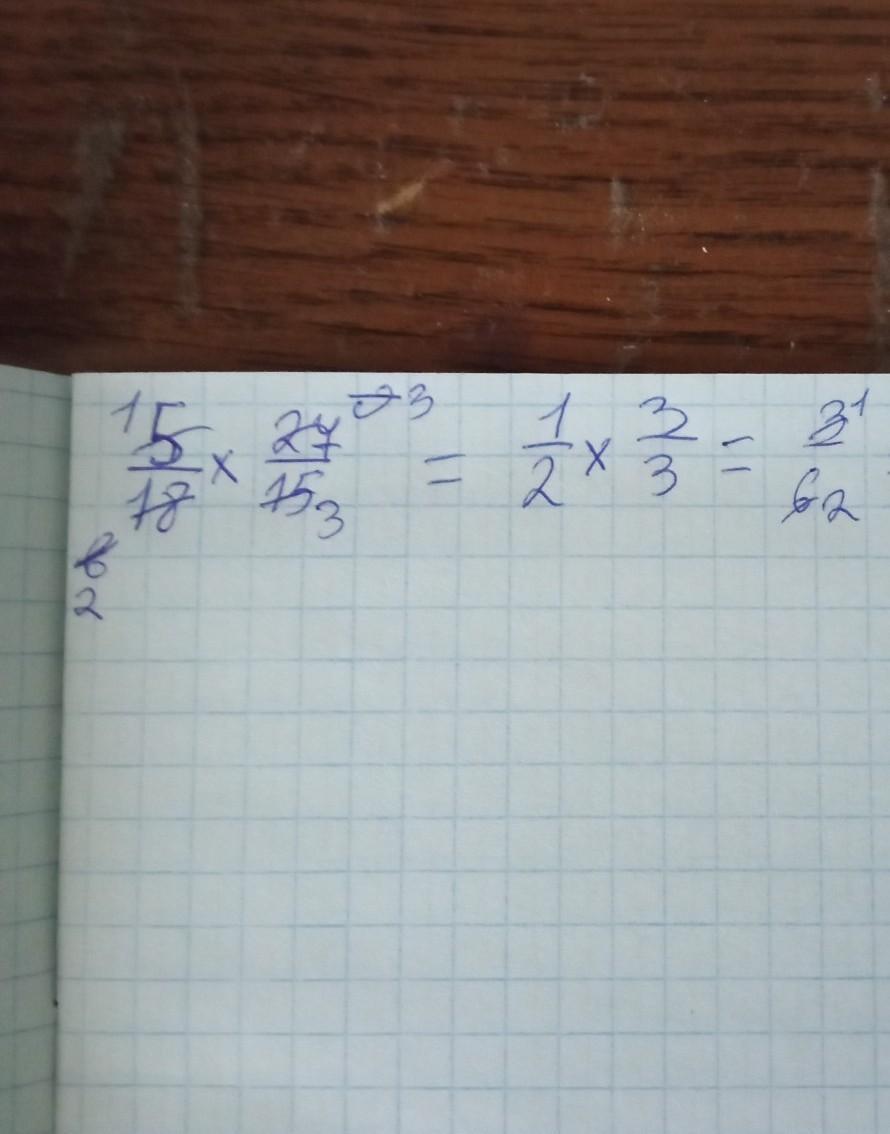 1 5/18 × 27/15 3 9 3 = 1/2 × 3/3 = 3 1/6 2
6
2